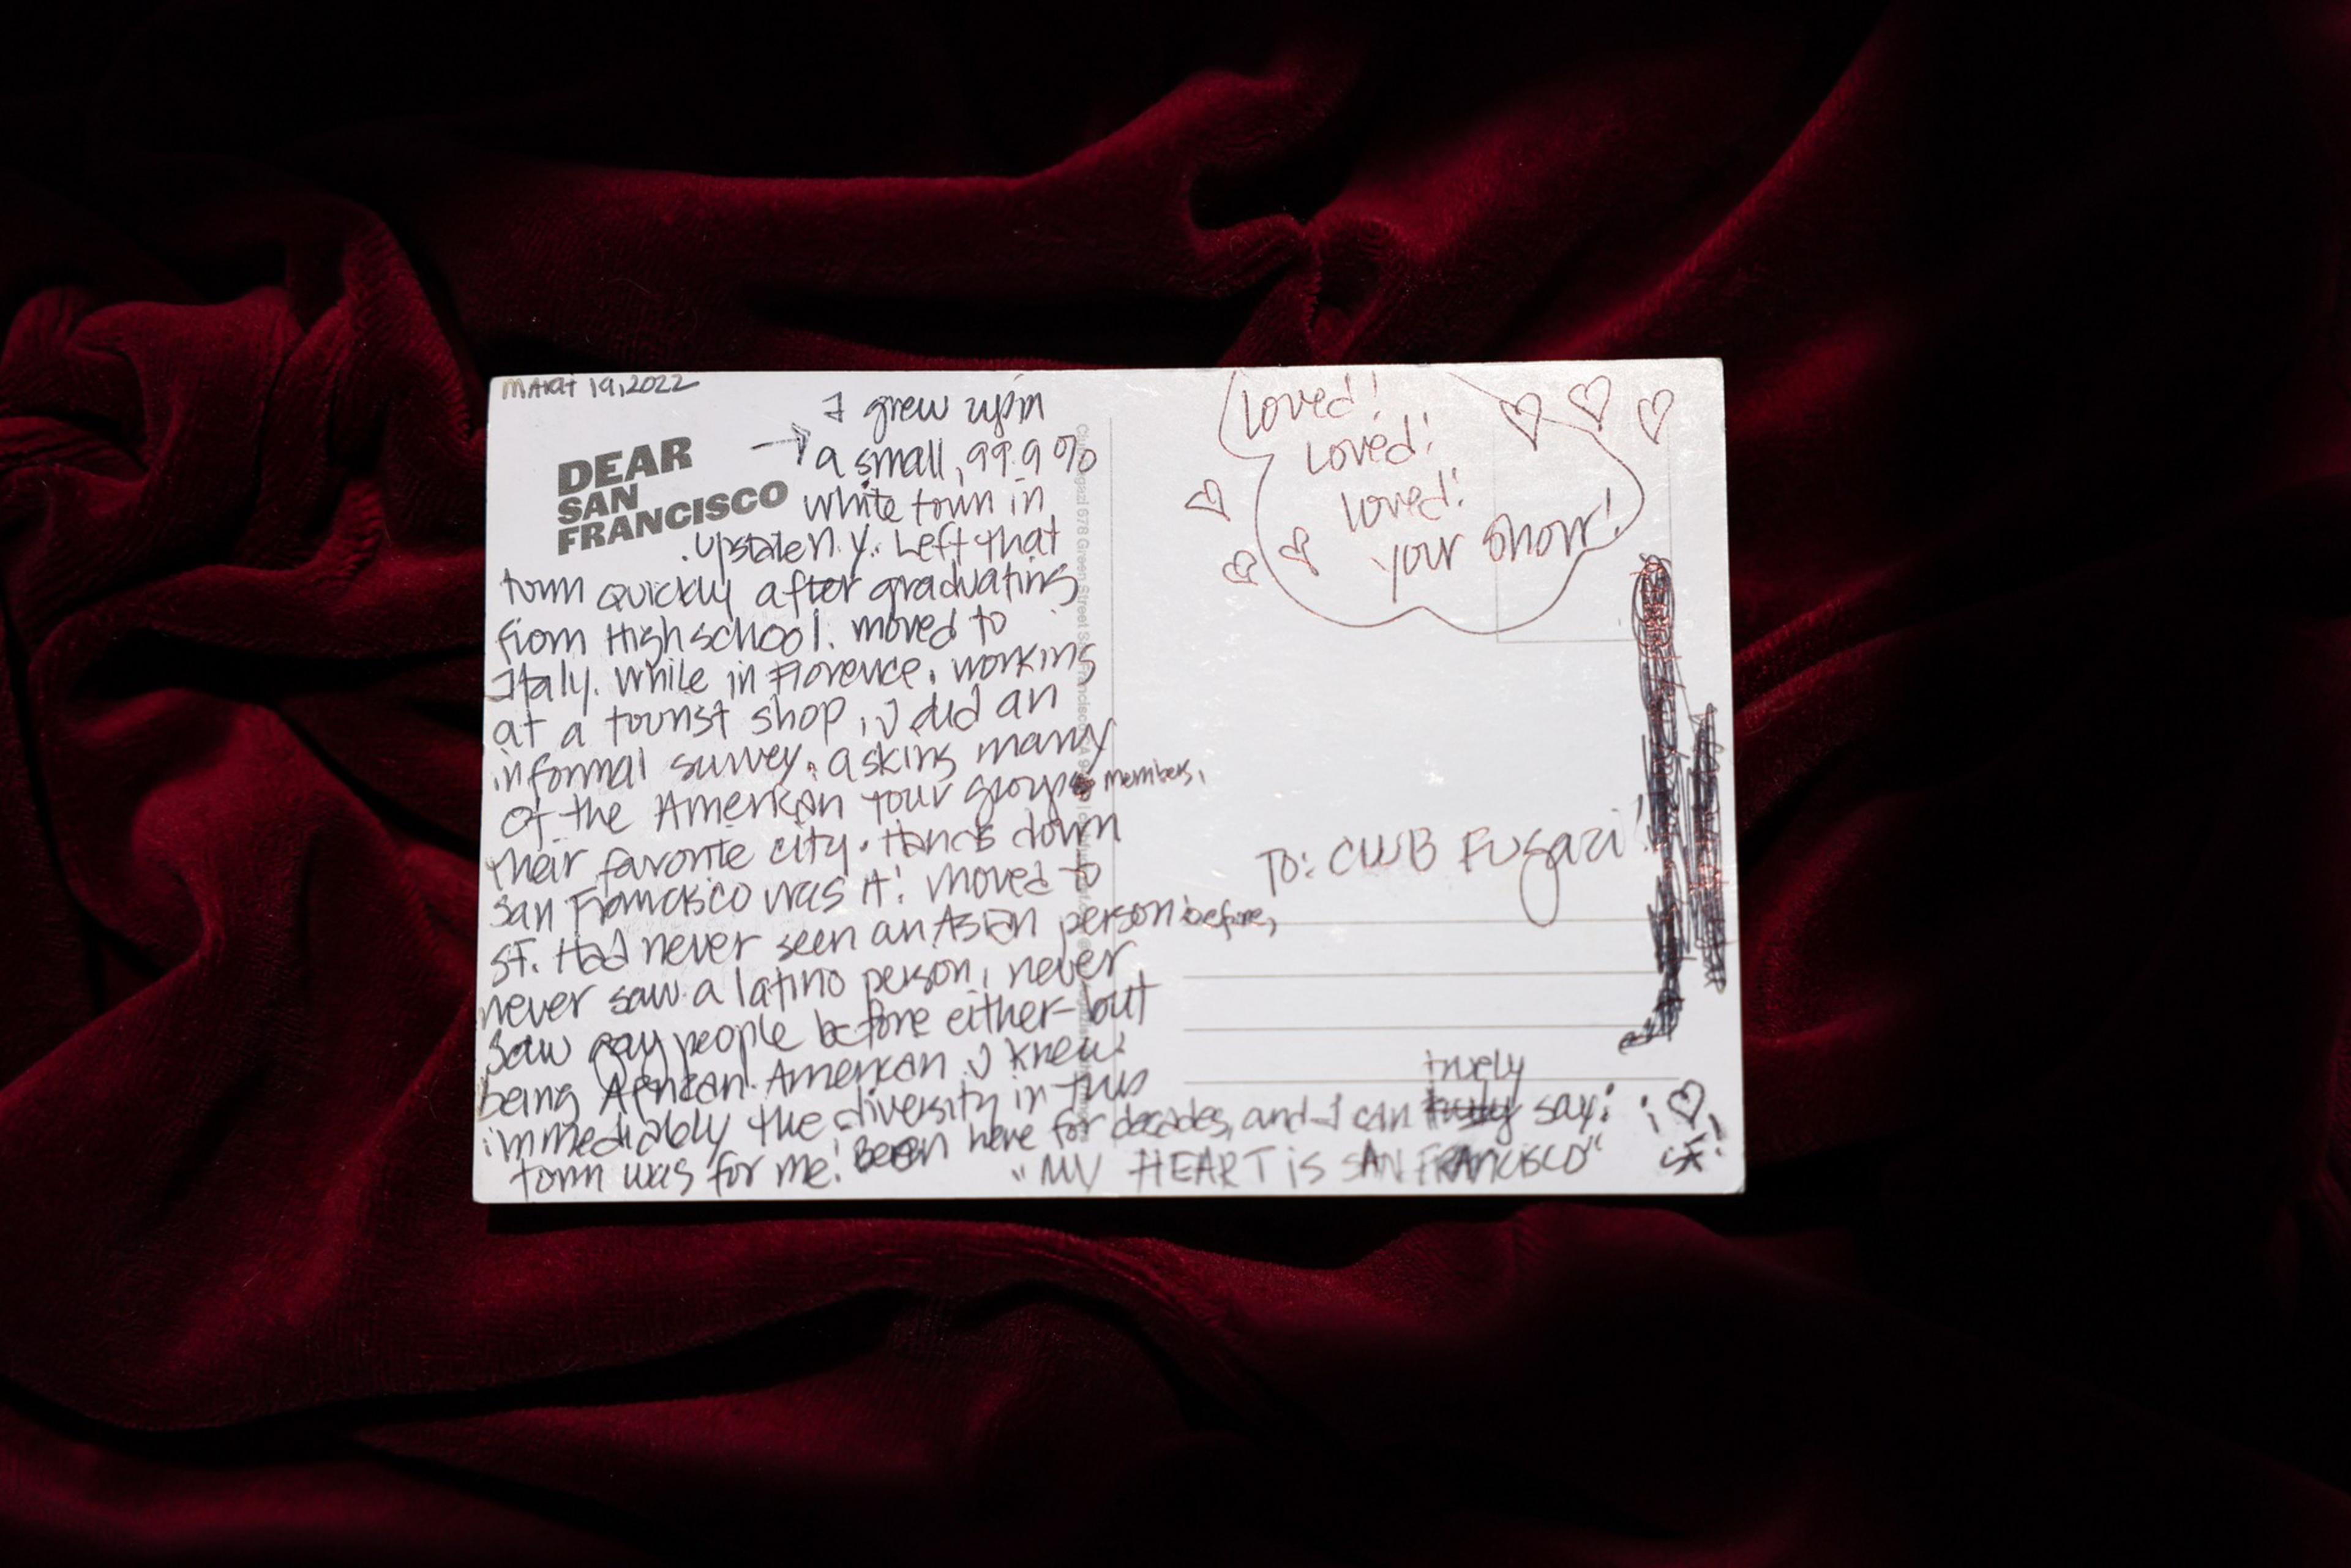 March 19, 2022
DEAR
SAN
FRANCISCO
I grew up in
a small, 99.9%
white town in
upstate N.Y. Left that
town quickly after graduating
from High school. moved to
Italy. While in Florence, working
at a tourist shop, I did an
informal survey, asking many
of the American tour groups members,
their favorite city. Hands down
San Francisco was it! Moved to
SF. Had never seen an Asian person before,
never saw a latino person, never
saw gay people before either - but
being African American I knew
immediately the diversity in this
town was for me! Been here for decades, and I can truely say:
"MY HEART is SAN FRANCISCO"
♡
SF!
Loved!
Loved!
Loved!
your show!
To: CLUB Fugazi!
Club Fugazi 678 Green Street San Francisco CA